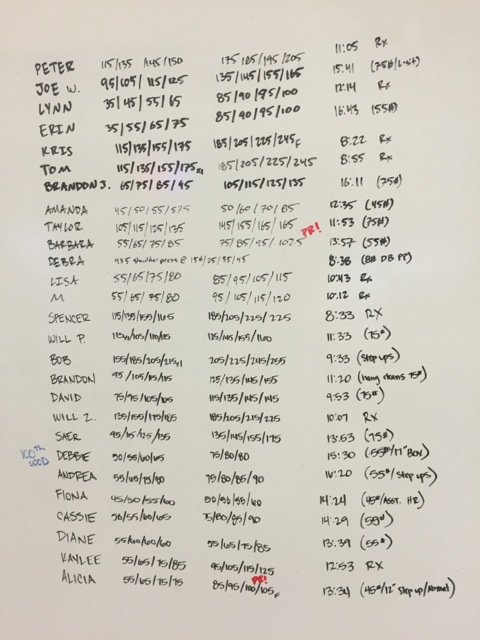 PETER 115/135 145/150 175 185/195/205 11:05 Rx
JOE W. 95/105/115/125 135/145/155/165 15:41 (75#/
LYNN 35/45/55/65 85/90/95/100 12:14 Rx
ERIN 35/55/65/75 85/90/95/100 16:43 (55#)
KRIS 115/135/155/175 185/205/225/245F 8:22 Rx
TOM 115/135/155/175 185/205/225/245 8:55 Rx
BRANDON J. 65/75/85/95 105/115/125/135 16:11 (75#)
AMANDA 45/50/55/575 50/60/70/85 12:35 (45#)
TAYLOR 105/115/125/135 145/155/165/165 PR! 11:53 (75#)
BARBARA 55/65/75/85 75/85/95/107.5 13:57 (55#)
DEBRA 4x5 shoulder press @ 15#/25/35/45 8:38 (8# DB PP)
LISA 55/65/75/80 85/95/105/115 10:43 Rx
M 55/65/75/80 95/105/115/120 10:12 Rx
SPENCER 115/135/155/165 185/205/225/225 8:33 RX
WILL P. 11:33 (75#)
BOB 155/185/205/215 205/225/245/255 9:33 (step ups)
BRANDON 95/105/115/125 125/135/145/155 11:20 (hang cleans 75#)
DAVID 75/95/105/105 115/135/145/145 9:53 (75#)
WILL Z. 135/155/175/185 185/205/215/225 10:07 RX
SAER 95/115/125/135 135/145/155/175 13:53 (75#)
100th WOD DEBBIE 50/55/60/65 75/80/80 15:30 (55#/17" BOX)
ANDREA 55/65/75/80 75/80/85/90 16:20 (55#/step ups)
FIONA 45/50/55/60 50/55/55/60 14:24 (45#/Asst. HR)
CASSIE 50/55/60/65 75/80/85/90 14:29 (55#)
DIANE 55/60/60/60 55/65/75/85 13:39 (55#)
KAYLEE 55/65/75/85 95/105/115/125 12:53 RX
ALICIA 55/65/75/75 85/95/100/105F PR! 13:34 (45#/12" step up/normal)